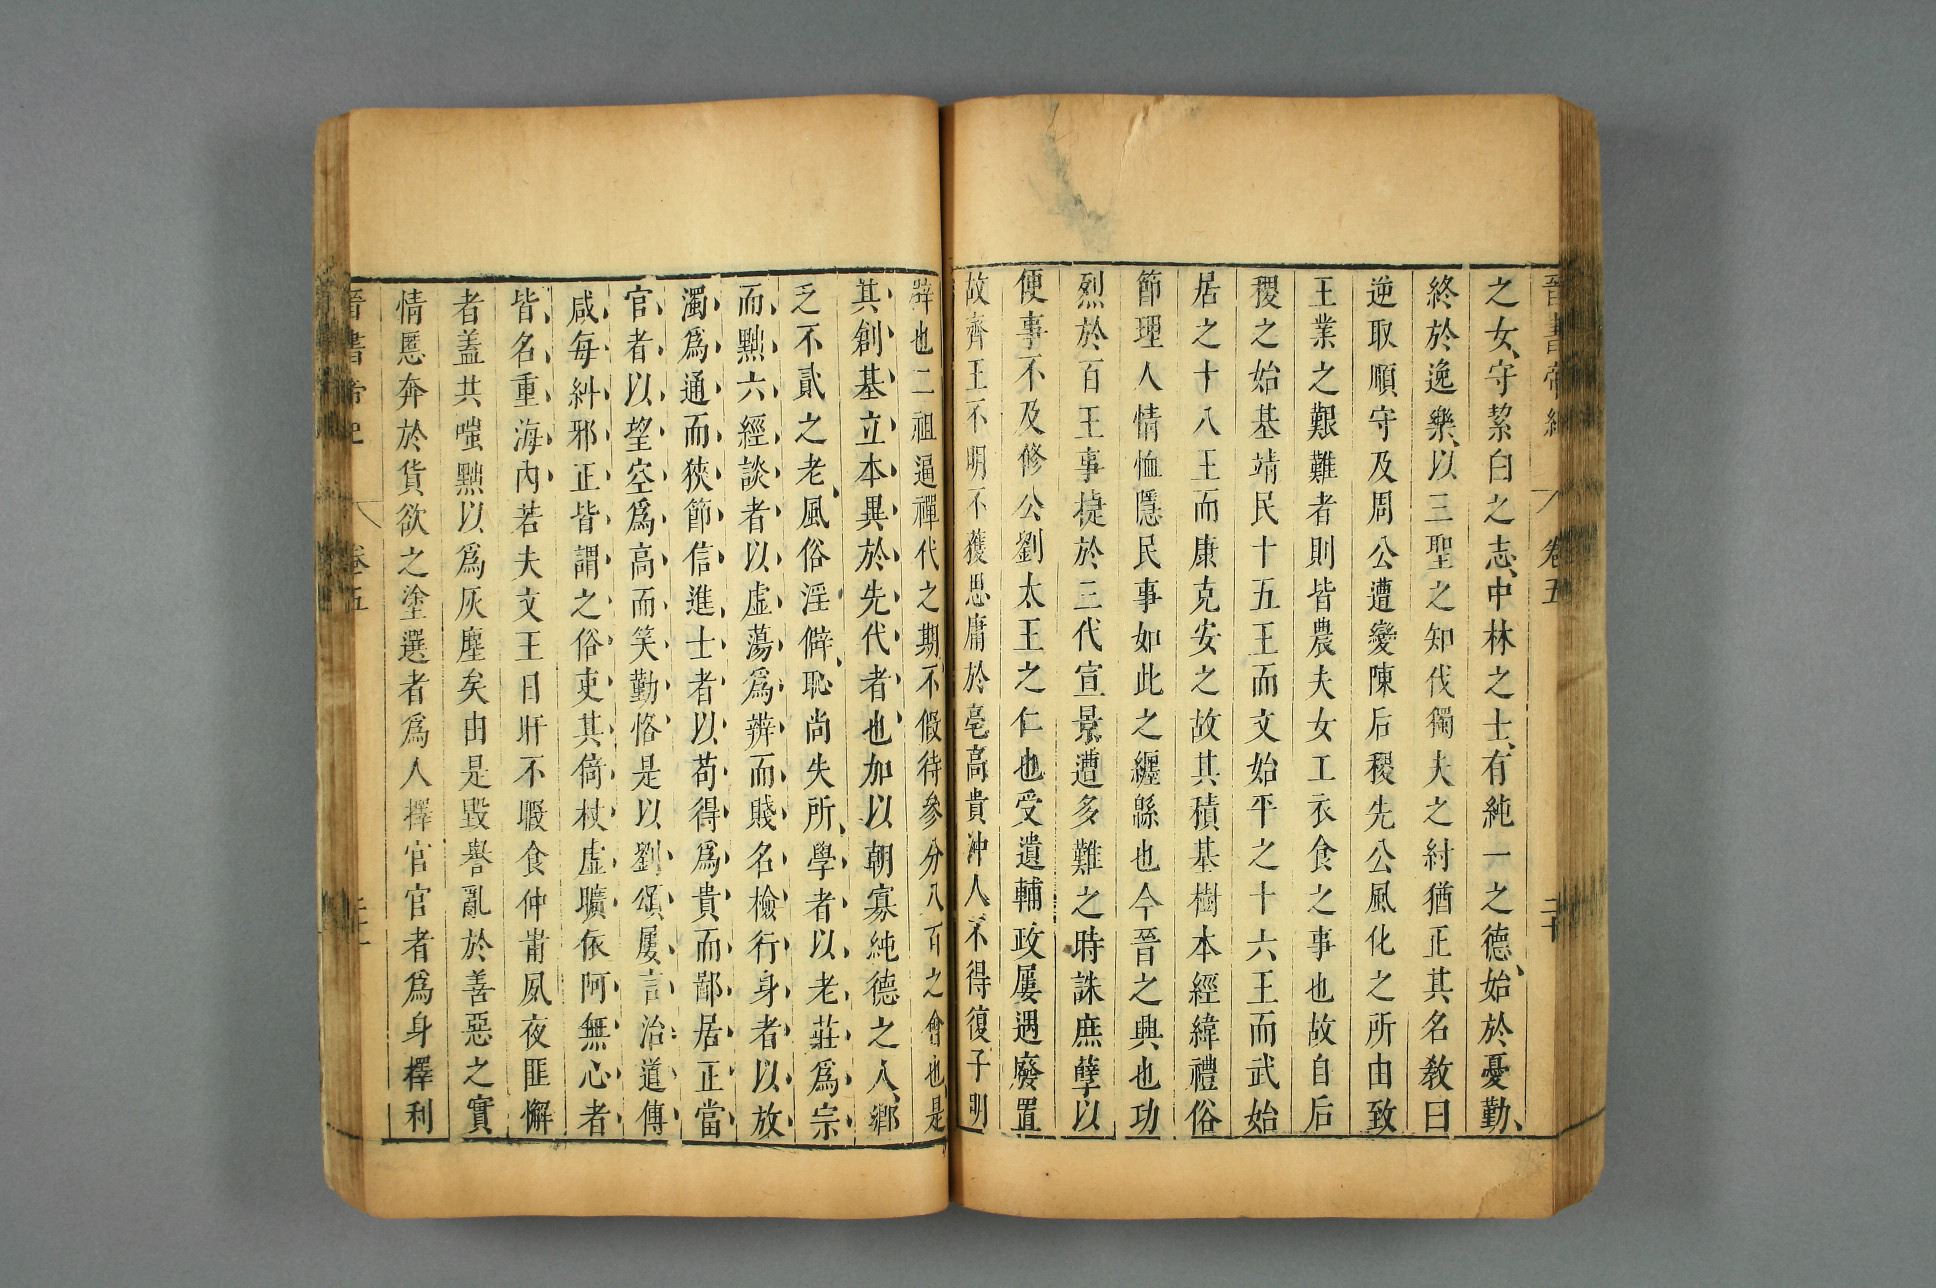 晉書帝紀 卷五 二十
之女守絜白之志中林之士有純一之德始於憂勤
終於逸樂以三聖之知伐獨夫之紂猶正其名教曰
逆取順守及周公遭變陳后稷先公風化之所由致
王業之艱難者則皆農夫女工衣食之事也故自后
稷之始基靖民十五王而文始平之十六王而武始
居之十八王而康克安之故其積基樹本經緯禮俗
節理人情恤隱民事如此之纏緜也今晉之興也功
烈於百王事捷於三代宣景遭多難之時誅庶孽以
便事不及修公劉太王之仁也受遺輔政屢遇廢置
故齊王不明不獲思庸於亳高貴冲人不得復子明
辟也二祖逼禪代之期不假待參分八百之會也是
其創基立本異於先代者也加以朝寡純德之人鄉
乏不貳之老風俗淫僻恥尚失所學者以老莊爲宗
而黜六經談者以虛蕩爲辨而賤名檢行身者以放
濁爲通而狹節信進士者以苟得爲貴而鄙居正當
官者以望空爲高而笑勤恪是以劉頌屢言治道傅
咸每糾邪正皆謂之俗吏其倚杖虛曠依阿無心者
皆名重海內若夫文王日旰不暇食仲甫夙夜匪懈
者蓋共嗤黜以爲灰塵矣由是毀譽亂於善惡之實
情慝奔於貨欲之塗選者爲人擇官官者爲身擇利
晉書帝紀 卷五